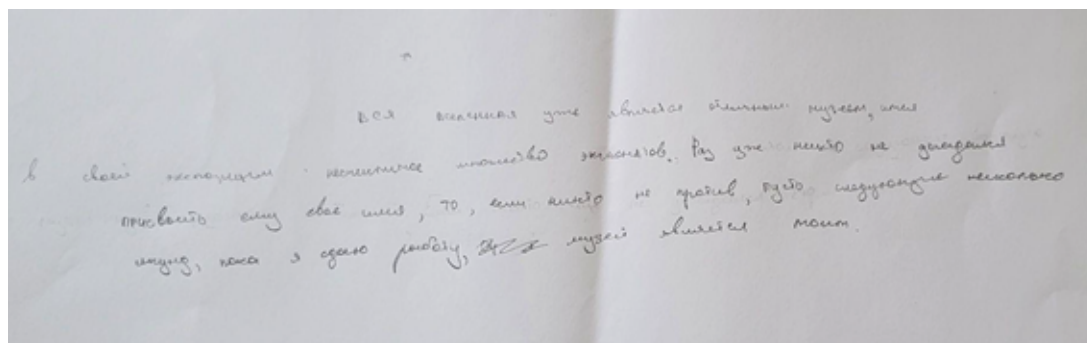 Вся вселенная уже является отличным музеем, имея
в своей экспозиции несчётное множество экспонатов. Раз уже никто не догадался
присвоить ему своё имя, то, если никто не против, пусть следующие несколько
секунд, пока я сдаю работу, музей является моим.